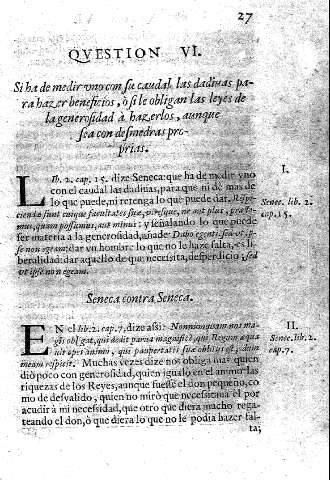 27
QVESTION VI.
Si ha de medir vno con su caudal las dadiuas pa-
ra hazer beneficios, ò si le obligan las leyes de
la generosidad à hazerlos, aunque
sea con desmedras pro-
prias.
I.
LIb. 2. cap. 15. dize Seneca: que ha de medir vno
con el caudal las dadiuas, para que ni dè mas de
lo que puede, ni retenga lo que puede dar.
Senec. lib. 2.
cap. 15.
sunt cuique facultates suæ,
mus, quam possumus, aut minus: y señalando lo que puede
ser materia a la generosidad, añade: Dabo egenti, sed vt ip-
se non egeam: dar vn hombre lo que no le haze falta, es li-
beralidad: dar aquello de que necessita, desperdicio, sed
vt ipse non egeam.
Seneca contra Seneca.
II.
EN el lib. 2. cap. 7. dize assi: Nonnunquam nos ma-
gis obligat, qui dedit parua magnificè, qui Regum æqua-
uit opes animo, qui
Senec. lib. 2.
cap. 7.
Muchas vezes dize nos obliga mas quien
diò poco con generosidad, quien igualò en el animo las
riquezas de los Reyes, aunque fuesse el don pequeño, co
mo de desvalido, quien no mirò que necessitaua èl por
acudir à mi necessidad, que otro que diera mucho rega-
teando el don, ò que diera lo que no le podia hazer fal-
ta;